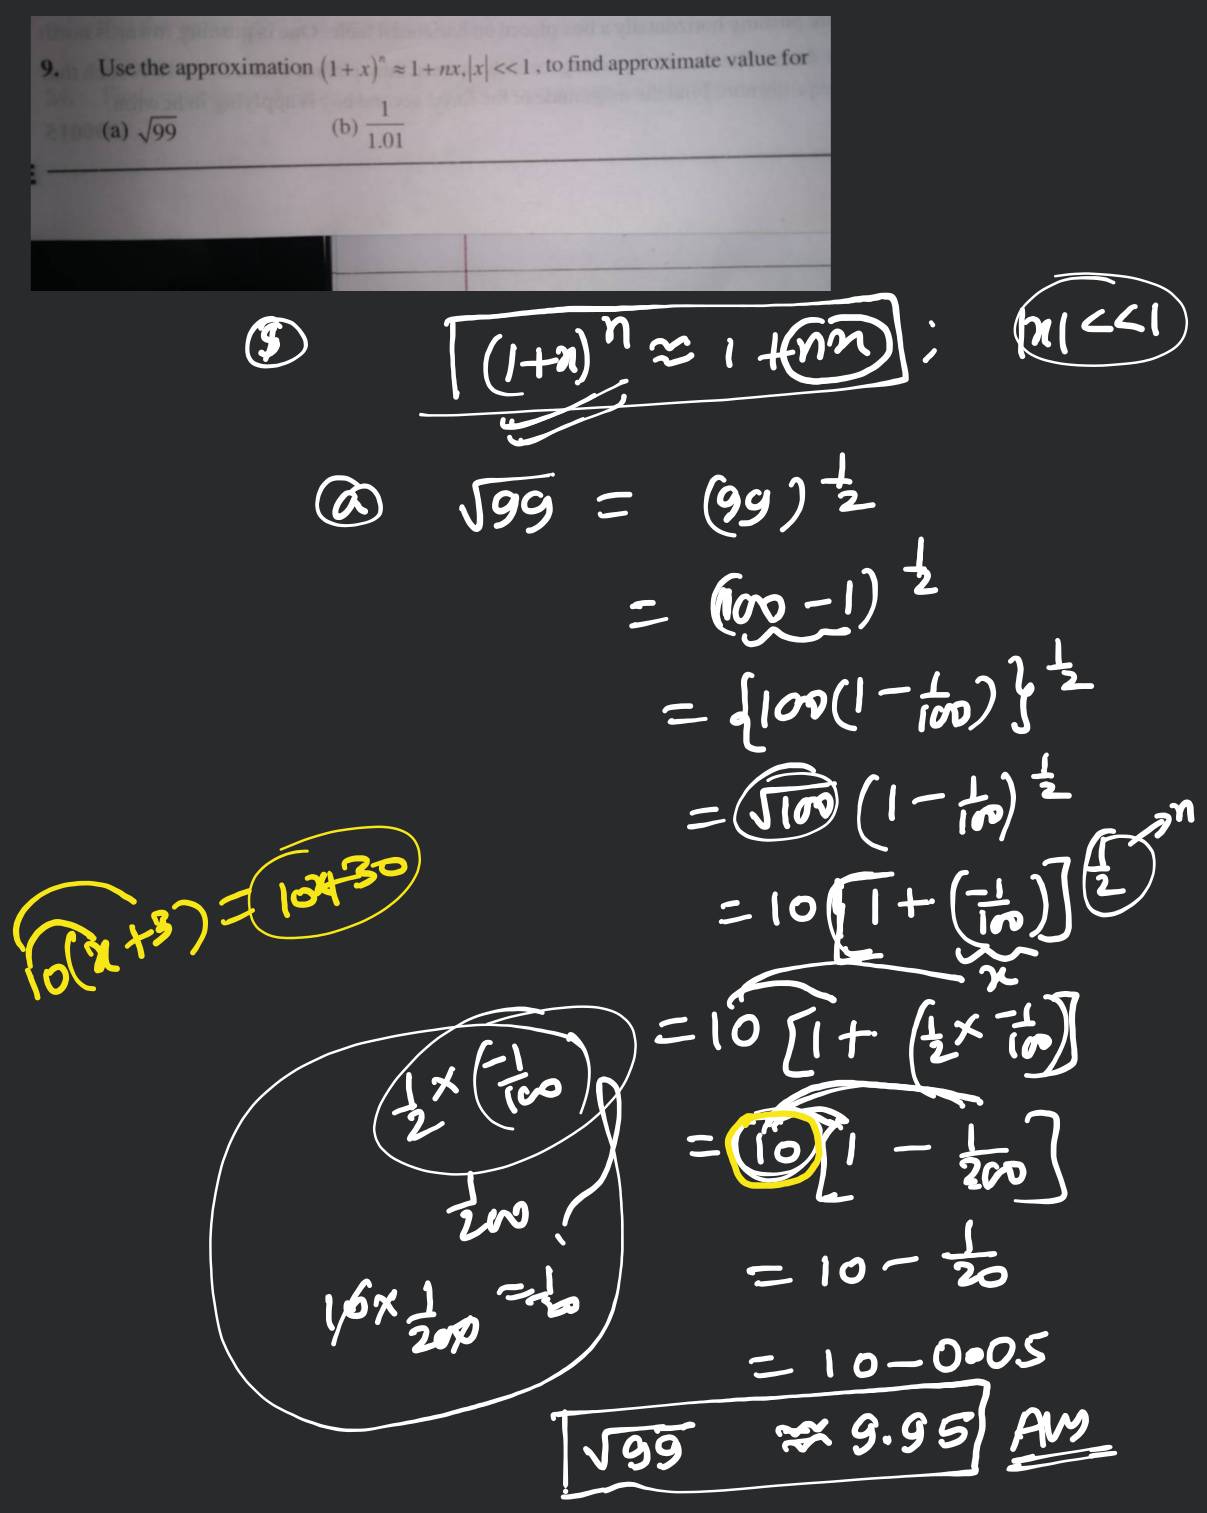 9. Use the approximation (1+x)ⁿ ≈ 1+nx, |x| << 1, to find approximate value for
(a) √99 (b) 1/1.01
(1+x)ⁿ ≈ 1 + nx ; |x| << 1
(a) √99 = (99)^1/2
= (100 - 1)^1/2
= {100(1 - 1/100)}^1/2
= √100 (1 - 1/100)^1/2
= 10 [1 + (-1/100)]^1/2 → n
x
10(x+3) = 10x+30
= 10 [1 + (1/2 × -1/100)]
1/2 × (-1/100)
= 10 [1 - 1/200]
1/200
= 10 - 1/20
10 × 1/200 =
= 10 - 0.05
√99 ≈ 9.95 Ans